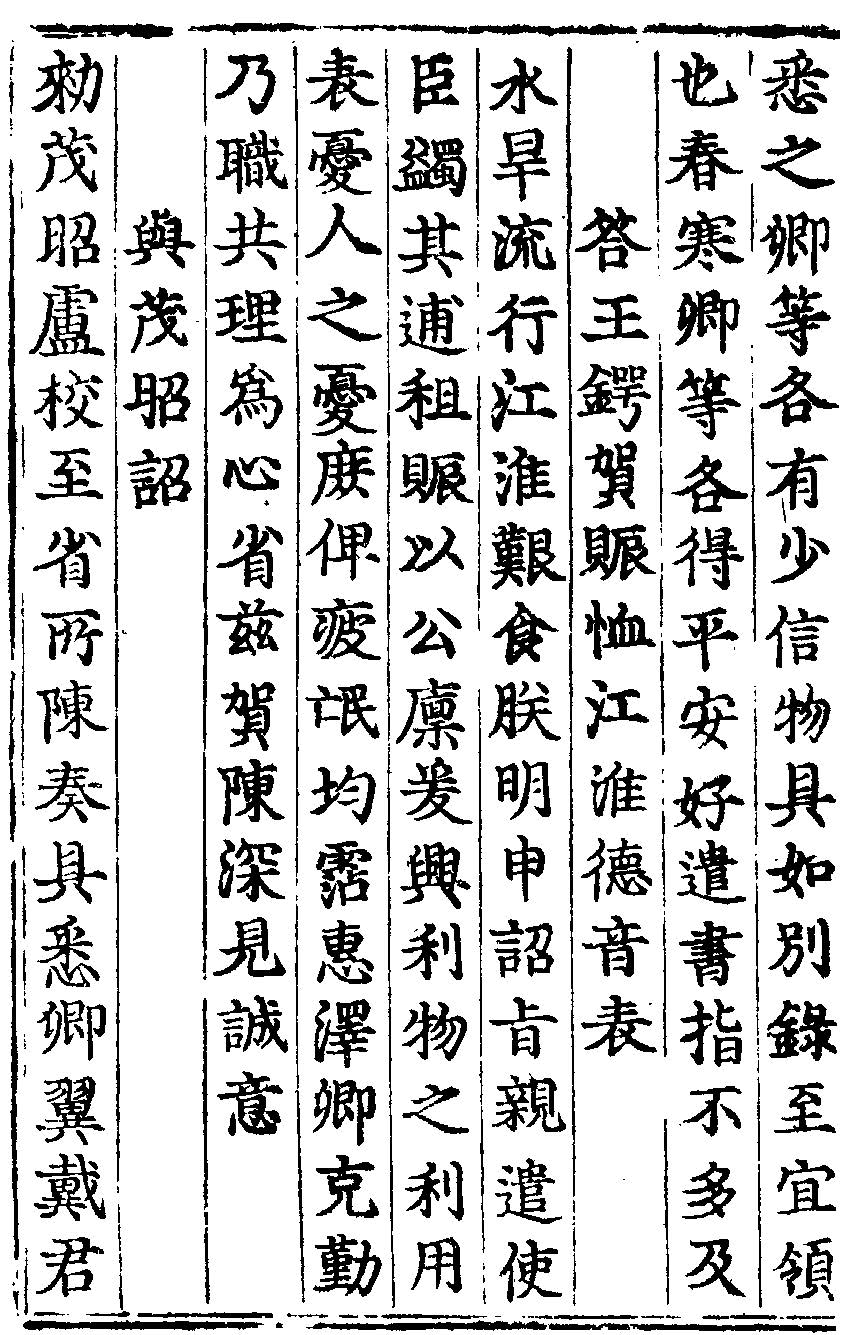 悉之卿等各有少信物具如別錄至宜領
也春寒卿等各得平安好遣書指不多及
答王鍔賀賑恤江淮德音表
水旱流行江淮艱食朕明申詔旨親遣使
臣蠲其逋租賑以公廩爰興利物之利用
表憂人之憂庶俾疲氓均霑惠澤卿克勤
乃職共理為心省茲賀陳深見誠意
與茂昭詔
勑茂昭盧校至省所陳奏具悉卿翼戴君